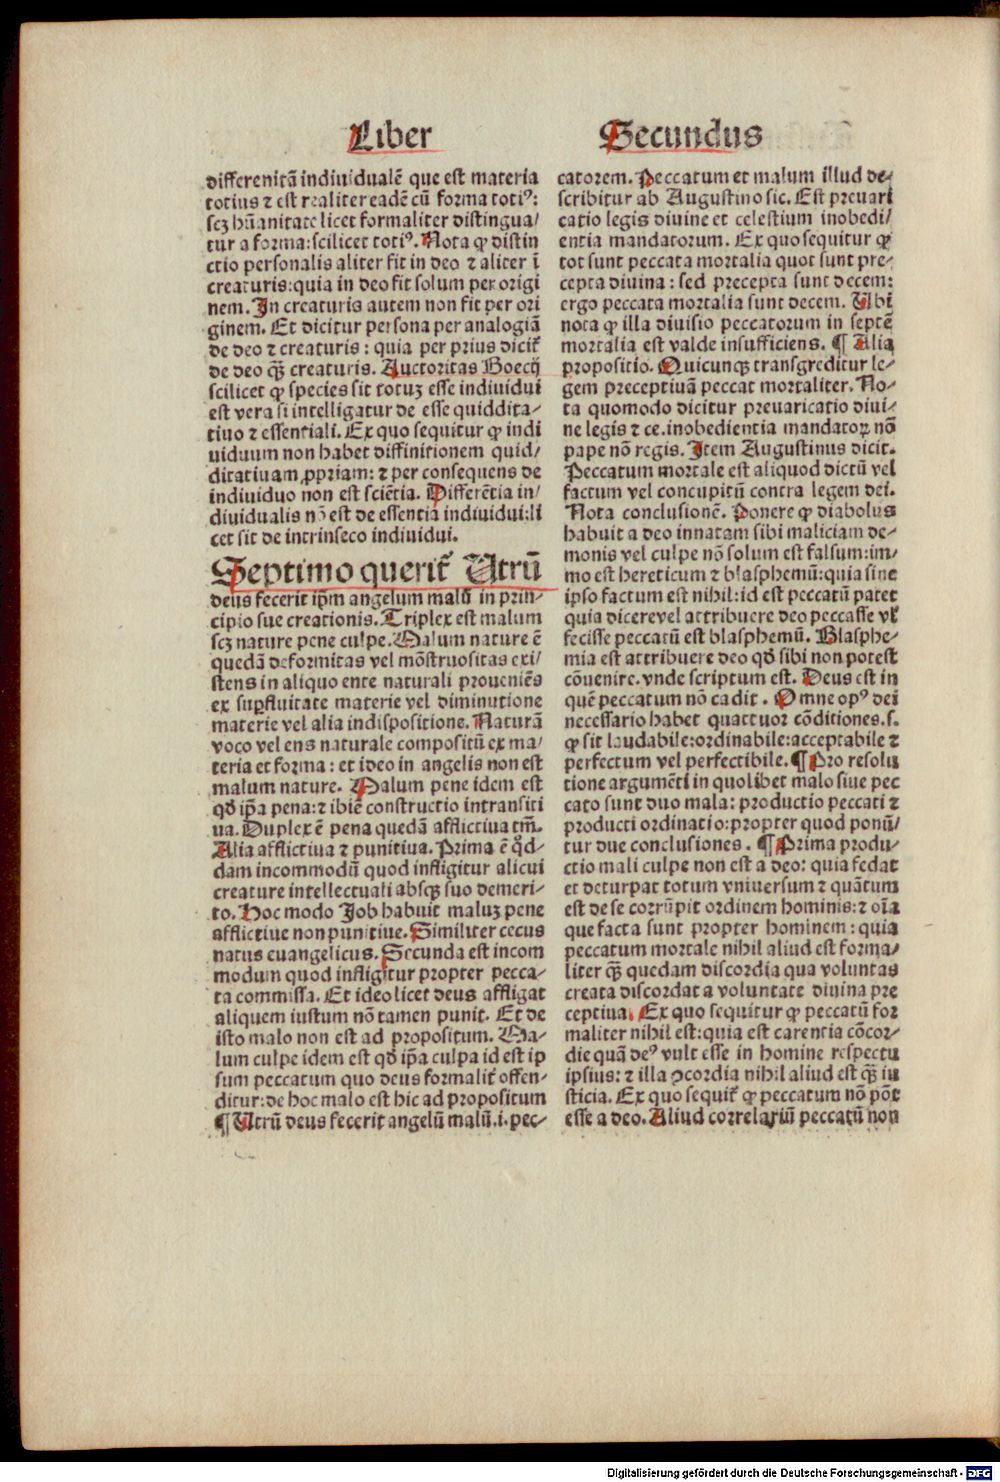 Liber Secundus
differenitā indiuidualē que est materia
totius ⁊ est realiter eadē cū forma totiꝰ:
scꝫ hūanitate licet formaliter distingua/
tur a forma: scilicet totiꝰ. Nota ꝙ distin
ctio personalis aliter fit in deo ⁊ aliter ī
creaturis: quia in deo fit solum per origi
nem. In creaturis autem non fit per ori
ginem. Et dicitur persona per analogiā
de deo ⁊ creaturis: quia per prius dicit᷑
de deo qꝫ̄ creaturis. Auctoritas Boecij
scilicet ꝙ species sit totuꝫ esse indiuidui
est vera si intelligatur de esse quiddita-
tiuo ⁊ essentiali. Ex quo sequitur ꝙ indi
uiduum non habet diffinitionem quid/
ditatiuam ꝓpriam: ⁊ per consequens de
indiuiduo non est sciētia. Differētia in/
diuidualis nō est de essentia indiuidui: li
cet sit de intrinseco indiuidui.
Septimo querit᷑ Utrū
deus fecerit ip̄m angelum malū in prin-
cipio sue creationis. Triplex est malum
scꝫ nature pene culpe. Malum nature ē
quedā deformitas vel mōstruositas exi/
stens in aliquo ente naturali proueniēs
ex suꝑfluitate materie vel diminutione
materie vel alia indispositione. Naturā
voco vel ens naturale compositū ex ma/
teria et forma: et ideo in angelis non est
malum nature. Malum pene idem est
qd̄ ip̄a pena: ⁊ ibiē constructio intransiti
ua. Duplex ē pena quedā afflictiua tm̄.
Alia afflictiua ⁊ punitiua. Prima ē qd-
dam incommodū quod infligitur alicui
creature intellectuali absqꝫ suo demeri-
to. Hoc modo Job habuit maluꝫ pene
afflictiue non punitiue. Similiter cecus
natus euangelicus. Secunda est incom
modum quod infligitur propter pecca-
ta commissa. Et ideo licet deus affligat
aliquem iustum nō tamen punit. Et de
isto malo non est ad propositum. Ma-
lum culpe idem est qd̄ ip̄a culpa id est ip
sum peccatum quo deus formalit᷑ offen-
ditur: de hoc malo est hic ad propositum
¶ Utrū deus fecerit angelū malū .i. pec-
catorem. Peccatum et malum illud de-
scribitur ab Augustino sic. Est preuari
catio legis diuine et celestium inobedi/
entia mandatorum. Ex quo sequitur ꝙ
tot sunt peccata mortalia quot sunt pre-
cepta diuina: sed precepta sunt decem:
ergo peccata mortalia sunt decem. Ubi
nota ꝙ illa diuisio peccatorum in septē
mortalia est valde insufficiens. ¶ Alia
propositio. Quicunqꝫ transgreditur le-
gem preceptiuā peccat mortaliter. No-
ta quomodo dicitur preuaricatio diui-
ne legis ⁊ ce. inobedientia mandatoꝝ nō
pape nō regis. Item Augustinus dicit.
Peccatum mortale est aliquod dictū vel
factum vel concupitū contra legem dei.
Nota conclusionē. Ponere ꝙ diabolus
habuit a deo innatam sibi maliciam de-
monis vel culpe nō solum est falsum: im/
mo est hereticum ⁊ blasphemū: quia sine
ipso factum est nihil: id est peccatū patet
quia dicere vel attribuere deo peccasse vl᷑
fecisse peccatū est blasphemū. Blasphe-
mia est attribuere deo qd̄ sibi non potest
cōuenire. vnde scriptum est. Deus est in
quē peccatum nō cadit. Omne opꝰ dei
necessario habet quattuor cōditiones. s.
ꝙ sit laudabile: ordinabile: acceptabile ⁊
perfectum vel perfectibile. ¶ Pro resolu
tione argumēti in quolibet malo siue pec
cato sunt duo mala: productio peccati ⁊
producti ordinatio: propter quod ponū/
tur due conclusiones. ¶ Prima produ-
ctio mali culpe non est a deo: quia fedat
et deturpat totum vniuersum ⁊ quātum
est de se corrūpit ordinem hominis: ⁊ oīa
que facta sunt propter hominem: quia
peccatum mortale nihil aliud est forma/
liter qꝫ̄ quedam discordia qua voluntas
creata discordat a voluntate diuina pre
ceptiua. Ex quo sequitur ꝙ peccatū for
maliter nihil est: quia est carentia cōcor-
die quā deꝰ vult esse in homine respectu
ipsius: ⁊ illa ꝯcordia nihil aliud est qꝫ̄ iu
sticia. Ex quo sequit᷑ ꝙ peccatum nō pōt
esse a deo. Aliud correlariū peccatū non
Digitalisierung gefördert durch die Deutsche Forschungsgemeinschaft - DFG